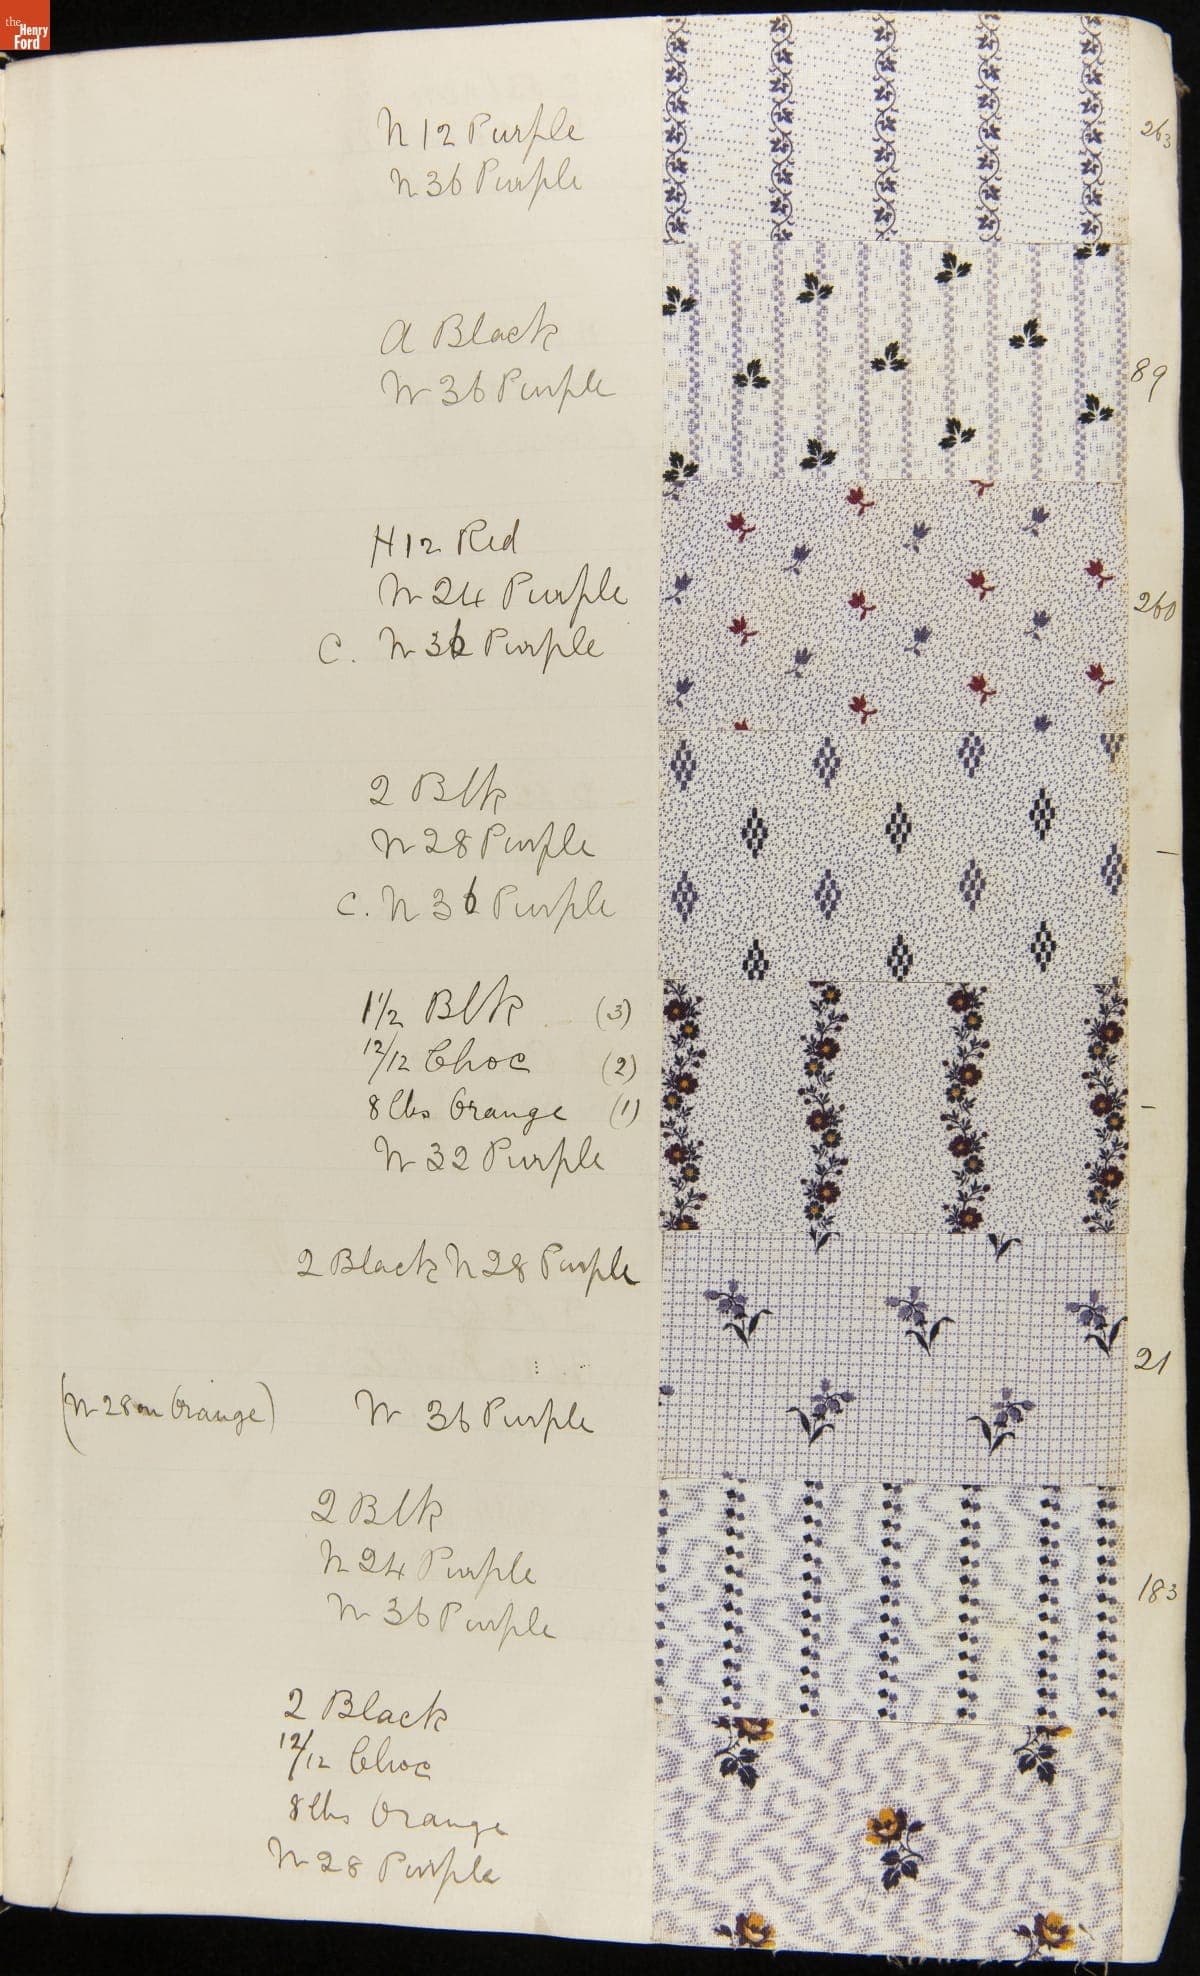 the Henry Ford
N 12 Purple
N 36 Purple
263
A Black
N 36 Purple
89
H 12 Red
N 24 Purple
C. N 36 Purple
260
2 Blk
N 28 Purple
C. N 36 Purple
—
1 1/2 Blk (3)
12/12 Choc (2)
8 lbs Orange (1)
N 32 Purple
—
2 Black N 28 Purple
21
(N 28 on Orange) N 36 Purple
2 Blk
N 24 Purple
N 36 Purple
183
2 Black
12/12 Choc
8 lbs Orange
N 28 Purple